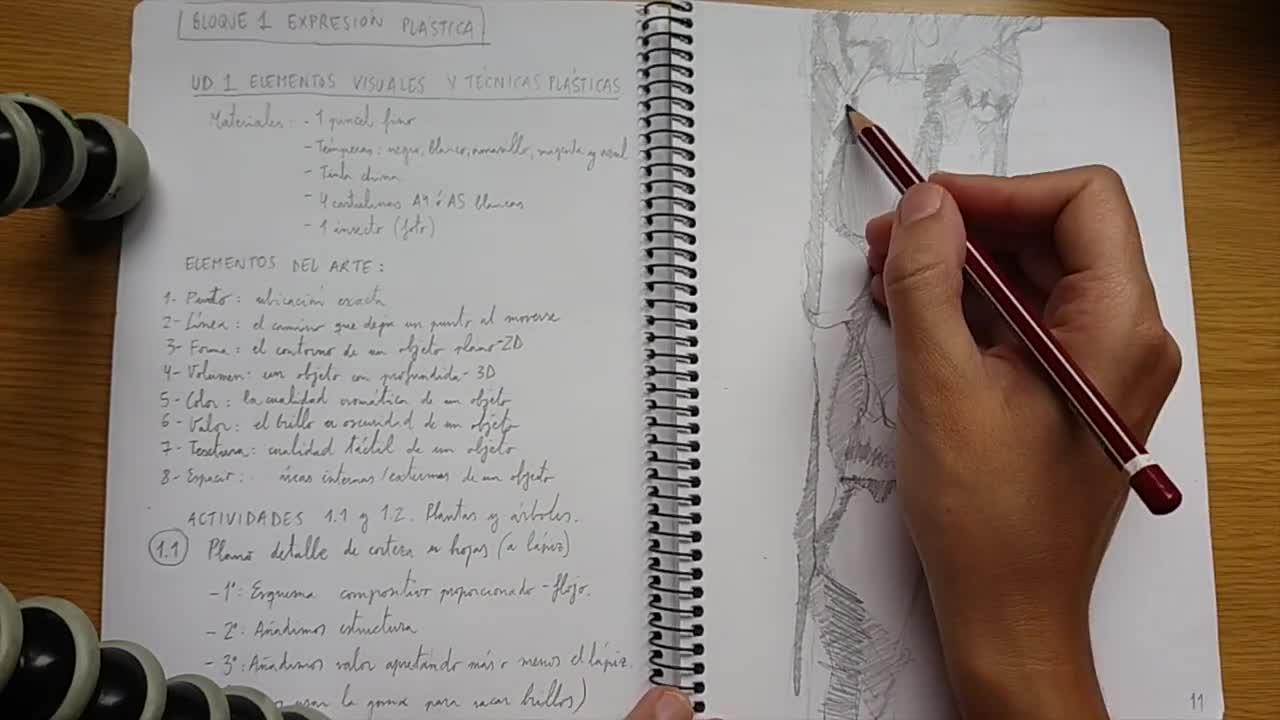 BLOQUE 1 EXPRESIÓN PLÁSTICA
UD 1 ELEMENTOS VISUALES Y TÉCNICAS PLÁSTICAS
Materiales: - 1 pincel fino
- Témperas: negro, blanco, amarillo, magenta y azul
- Tinta china
- 4 cartulinas A4 ó A5 blancas
- 1 insecto (foto)
ELEMENTOS DEL ARTE:
1- Punto: ubicación exacta
2- Línea: el camino que deja un punto al moverse
3- Forma: el contorno de un objeto plano-2D
4- Volumen: un objeto con profundida-3D
5- Color: la cualidad cromática de un objeto
6- Valor: el brillo u oscuridad de un objeto
7- Textura: cualidad táctil de un objeto
8- Espacio: áreas internas/externas de un objeto
ACTIVIDADES 1.1 y 1.2. Plantas y árboles.
1.1 Plano detalle de corteza u hojas (a lápiz)
- 1º: Esquema compositivo proporcionado - flojo.
- 2º: Añadimos estructura
- 3º: Añadimos valor apretando más o menos el lápiz.
usar la goma para sacar brillos)
11